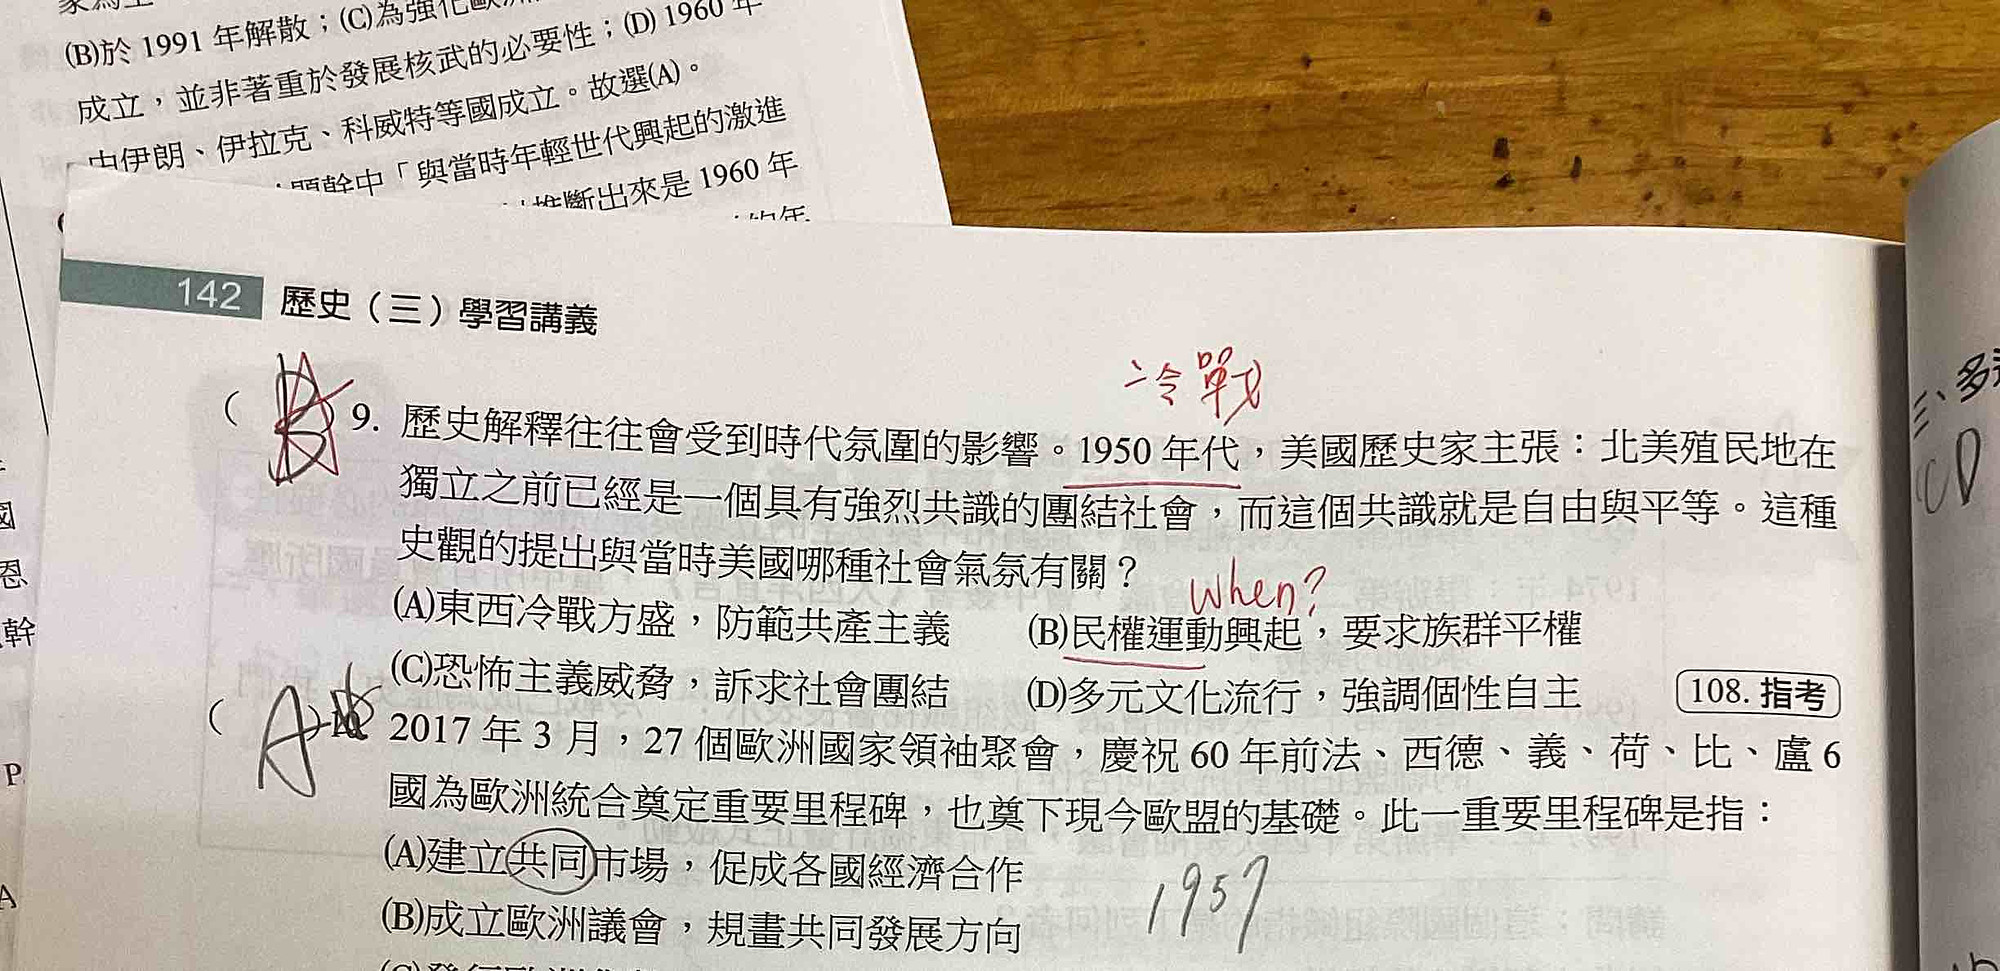 (B)於 1991 年解散；(C)為強化
成立，並非著重於發展核武的必要性；(D) 1960 年
由伊朗、伊拉克、科威特等國成立。故選(A)。
題幹中「與當時年輕世代興起的激進
推斷出來是 1960 年
142 歷史（三）學習講義
冷戰
( 9. 歷史解釋往往會受到時代氛圍的影響。1950 年代，美國歷史家主張：北美殖民地在
獨立之前已經是一個具有強烈共識的團結社會，而這個共識就是自由與平等。這種
史觀的提出與當時美國哪種社會氣氛有關？
when?
(A)東西冷戰方盛，防範共產主義 (B)民權運動興起，要求族群平權
(C)恐怖主義威脅，訴求社會團結 (D)多元文化流行，強調個性自主 108. 指考
( A 2017 年 3 月，27 個歐洲國家領袖聚會，慶祝 60 年前法、西德、義、荷、比、盧 6
國為歐洲統合奠定重要里程碑，也奠下現今歐盟的基礎。此一重要里程碑是指：
(A)建立共同市場，促成各國經濟合作
1957
(B)成立歐洲議會，規畫共同發展方向
國
恩
幹
P
A
三、多
CD